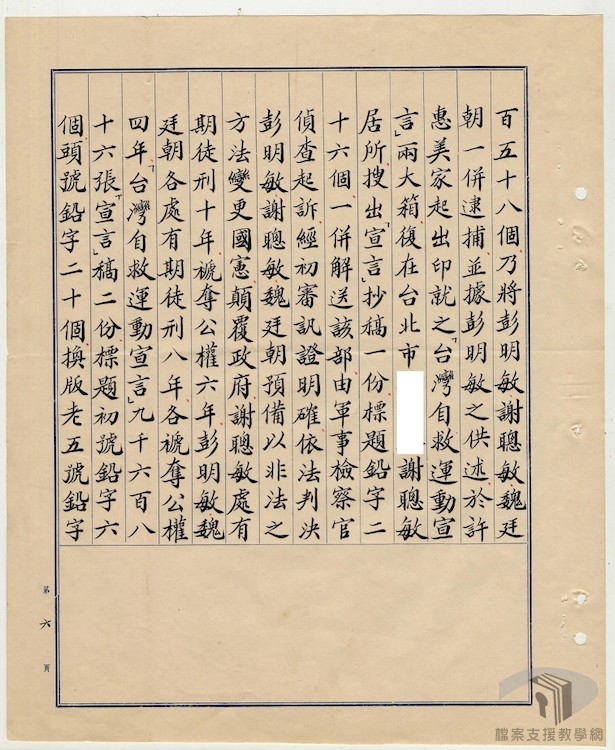 百五十八個乃將彭明敏謝聰敏魏廷
朝一併逮捕並據彭明敏之供述於許
惠美家起出印就之「台灣自救運動宣
言」兩大箱復在台北市
謝聰敏
居所搜出「宣言」抄稿一份標題鉛字二
十六個一併解送該部由軍事檢察官
偵查起訴經初審訊證明確依法判決
彭明敏謝聰敏魏廷朝預備以非法之
方法變更國憲顛覆政府謝聰敏處有
期徒刑十年褫奪公權六年彭明敏魏
廷朝各處有期徒刑八年各褫奪公權
四年「台灣自救運動宣言」九千六百八
十六張「宣言」稿二份標題初號鉛字六
個頭號鉛字二十個換版老五號鉛字
第六頁
檔案支援教學網